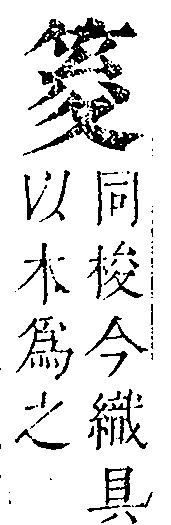 同梭今織具
以木爲之